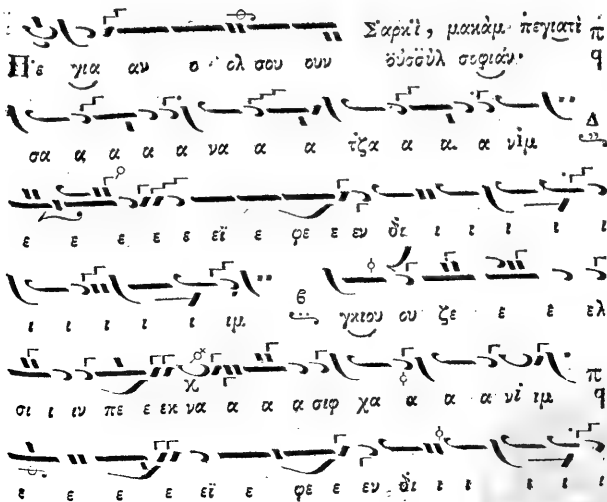 Σαρκὶ, μακὰμ πεγιατὶ π
Πε για αν ο ολ σου ουν οὐσοὺλ σοφιάν· q
σα α α α α να α α τζα α α α νὶμ Δ
ε ε ε ε ε εϊ ε φε ε εν δι ι ι ι ι ι
ι ι ι ι ι ιμ β γκιου ου ζε ε ε ελ
σι ι ιν πε ε εκ να α α α α σιφ χα α α α νὶ ιμ π q
ε ε ε ε εϊ ε φε ε εν δι ι ι ι ι ι